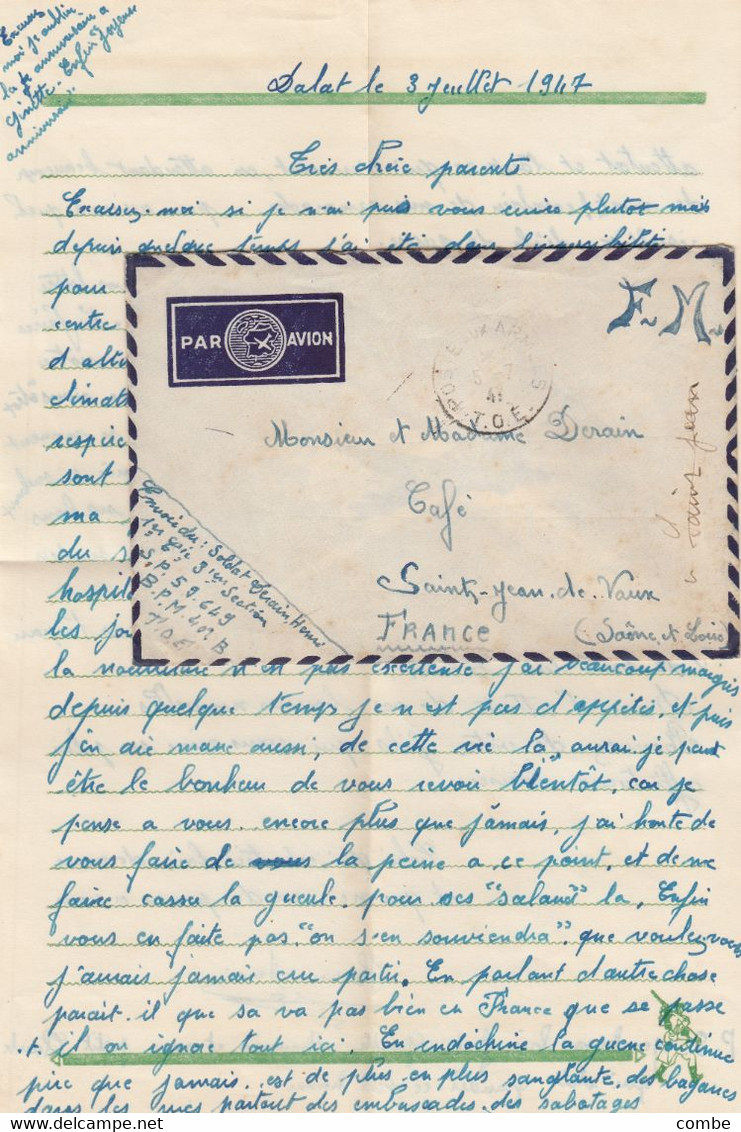 Excuse
moi j'oublie
la anniversaire a
Ginette. Enfin Joyeux
anniversaire.
Dalat le 3 Juillet 1947
Très chèie parents
Excusez-moi si je n'ai puis vous ecrire plutot mais
depuis quelque temps j'ai été dans l'impossibilité
pour
centre
d'altu
climat
respire
sont
ma
du s
hospit
les jou
PAR AVION
F.M.
POSTE AUX ARMEES
5 7
47
T.O.E.
Monsieur et Madame Derain
Café
Saint-Jean-de-Vaux
FRANCE (Saône et Loire)
Saint Jean
Envoie du: Soldat Derain Henri
S.P. 59.649
B.P.M. 411 B
T.O.E
la nourriture n'en pas escelente j'ai beaucoup maigris
depuis quelque temps je n'est pas d'appétis, et puis
j'en aie marre aussi, de cette vie la, aurai-je peut
être le bonheur de vous revoir bientôt, car je
pense a vous encore plus que jamais, j'ai honte de
vous faire de la peine a ce point, et de me
faire casser la gueule pour ses "salaud" la, Enfin
vous en faite pas, "on s'en souviendra", que voulez-vous
j'amais jamais cru partir. En parlant d'autre chose
parait-il que sa va pas bien en France que se passe
-t-il on ignore tout ici. En indochine la guerre continue
pire que jamais est de plus en plus sanglante des bagares
dans les rues partout des embuscades des sabotages